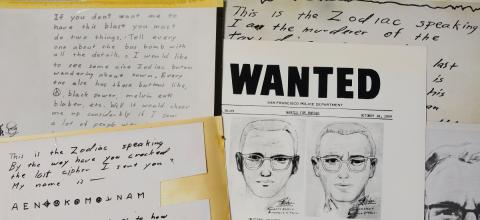 If you don't want me to
have this blast you must
do two things. Tell every
one about the bus bomb with
all the details. I would like
to see some nice Zodiac butons
wandering about town. Every
one else has these buttons like,
black power, melvin eats
blubber, etc. Well it would cheer
me up considerably if I saw
a lot of people
This is the Zodiac speaking
I am the murderer of the
last
is
WANTED
SAN FRANCISCO POLICE DEPARTMENT
WANTED FOR MURDER
OCTOBER 18, 1969
This is the Zodiac speaking
By the way have you cracked
the last cipher I sent you?
My name is —
A E N ⊕ K M N A M
how to